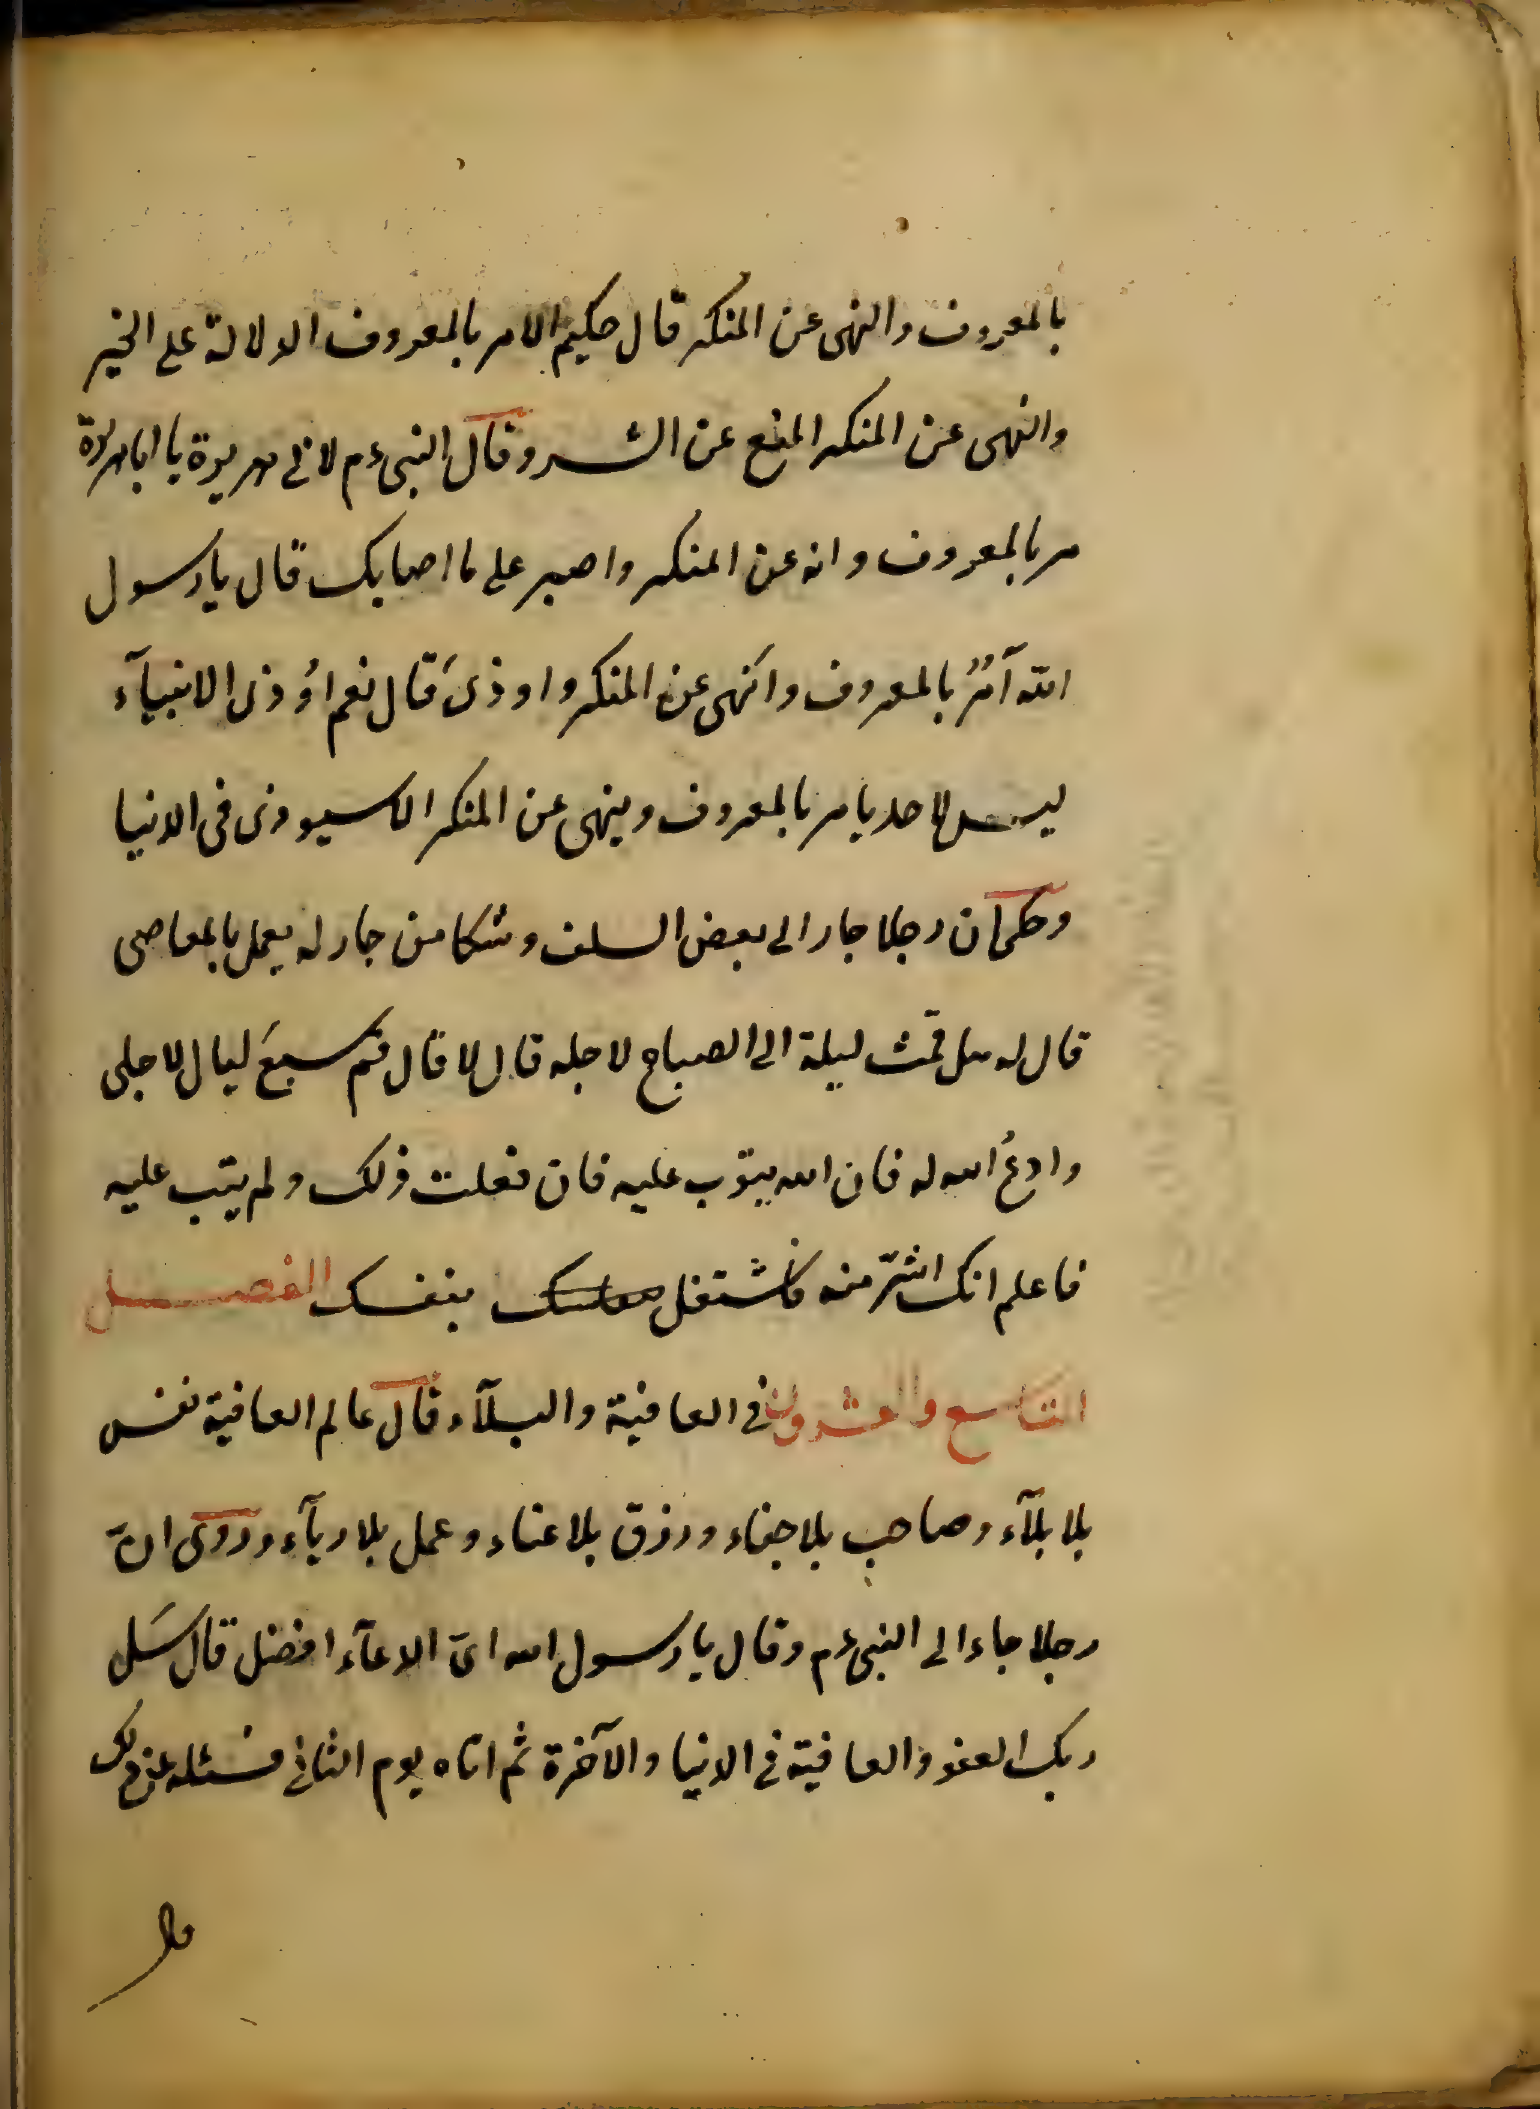 بالمعروف والنهى عن المنكر قال حكيم الامر بالمعروف الدلالة على الخير
والنهى عن المنكر المنع عن الشر وقال النبى ءم لابى هريرة يا ابا هريرة
مر بالمعروف وانه عن المنكر واصبر على ما اصابك قال يا رسول
الله آمرُ بالمعروف وانهى عن المنكر واوذىَ قال نعم اُوذى الانبيآء
ليس لاحد يامر بالمعروف وينهى عن المنكر الا سيوذى فى الدنيا
وحكى ان رجلا جاء الى بعض السلف وشكا من جار له يعمل بالمعاصى
قال له هل قمت ليلة الى الصباح لاجله قال لا قال قم سبعَ ليال لاجلى
وادعُ الله له فان الله يتوب عليه فان فعلت ذلك ولم يتب عليه
فاعلم انك اشرّ منه فاشتغل بنفسك الفصل
التاسع والعشرون فى العافية والبلآء قال عالم العافية نفس
بلا بلآء وصاحب بلا جفاء ورزق بلا عناء وعمل بلا ريآء وروى انّ
رجلا جاء الى النبى ءم وقال يا رسول الله اىّ الدعآء افضل قال سَل
ربك العفو والعافية فى الدنيا والآخرة ثم اتاه يوم الثانى فسئله عن ذلك